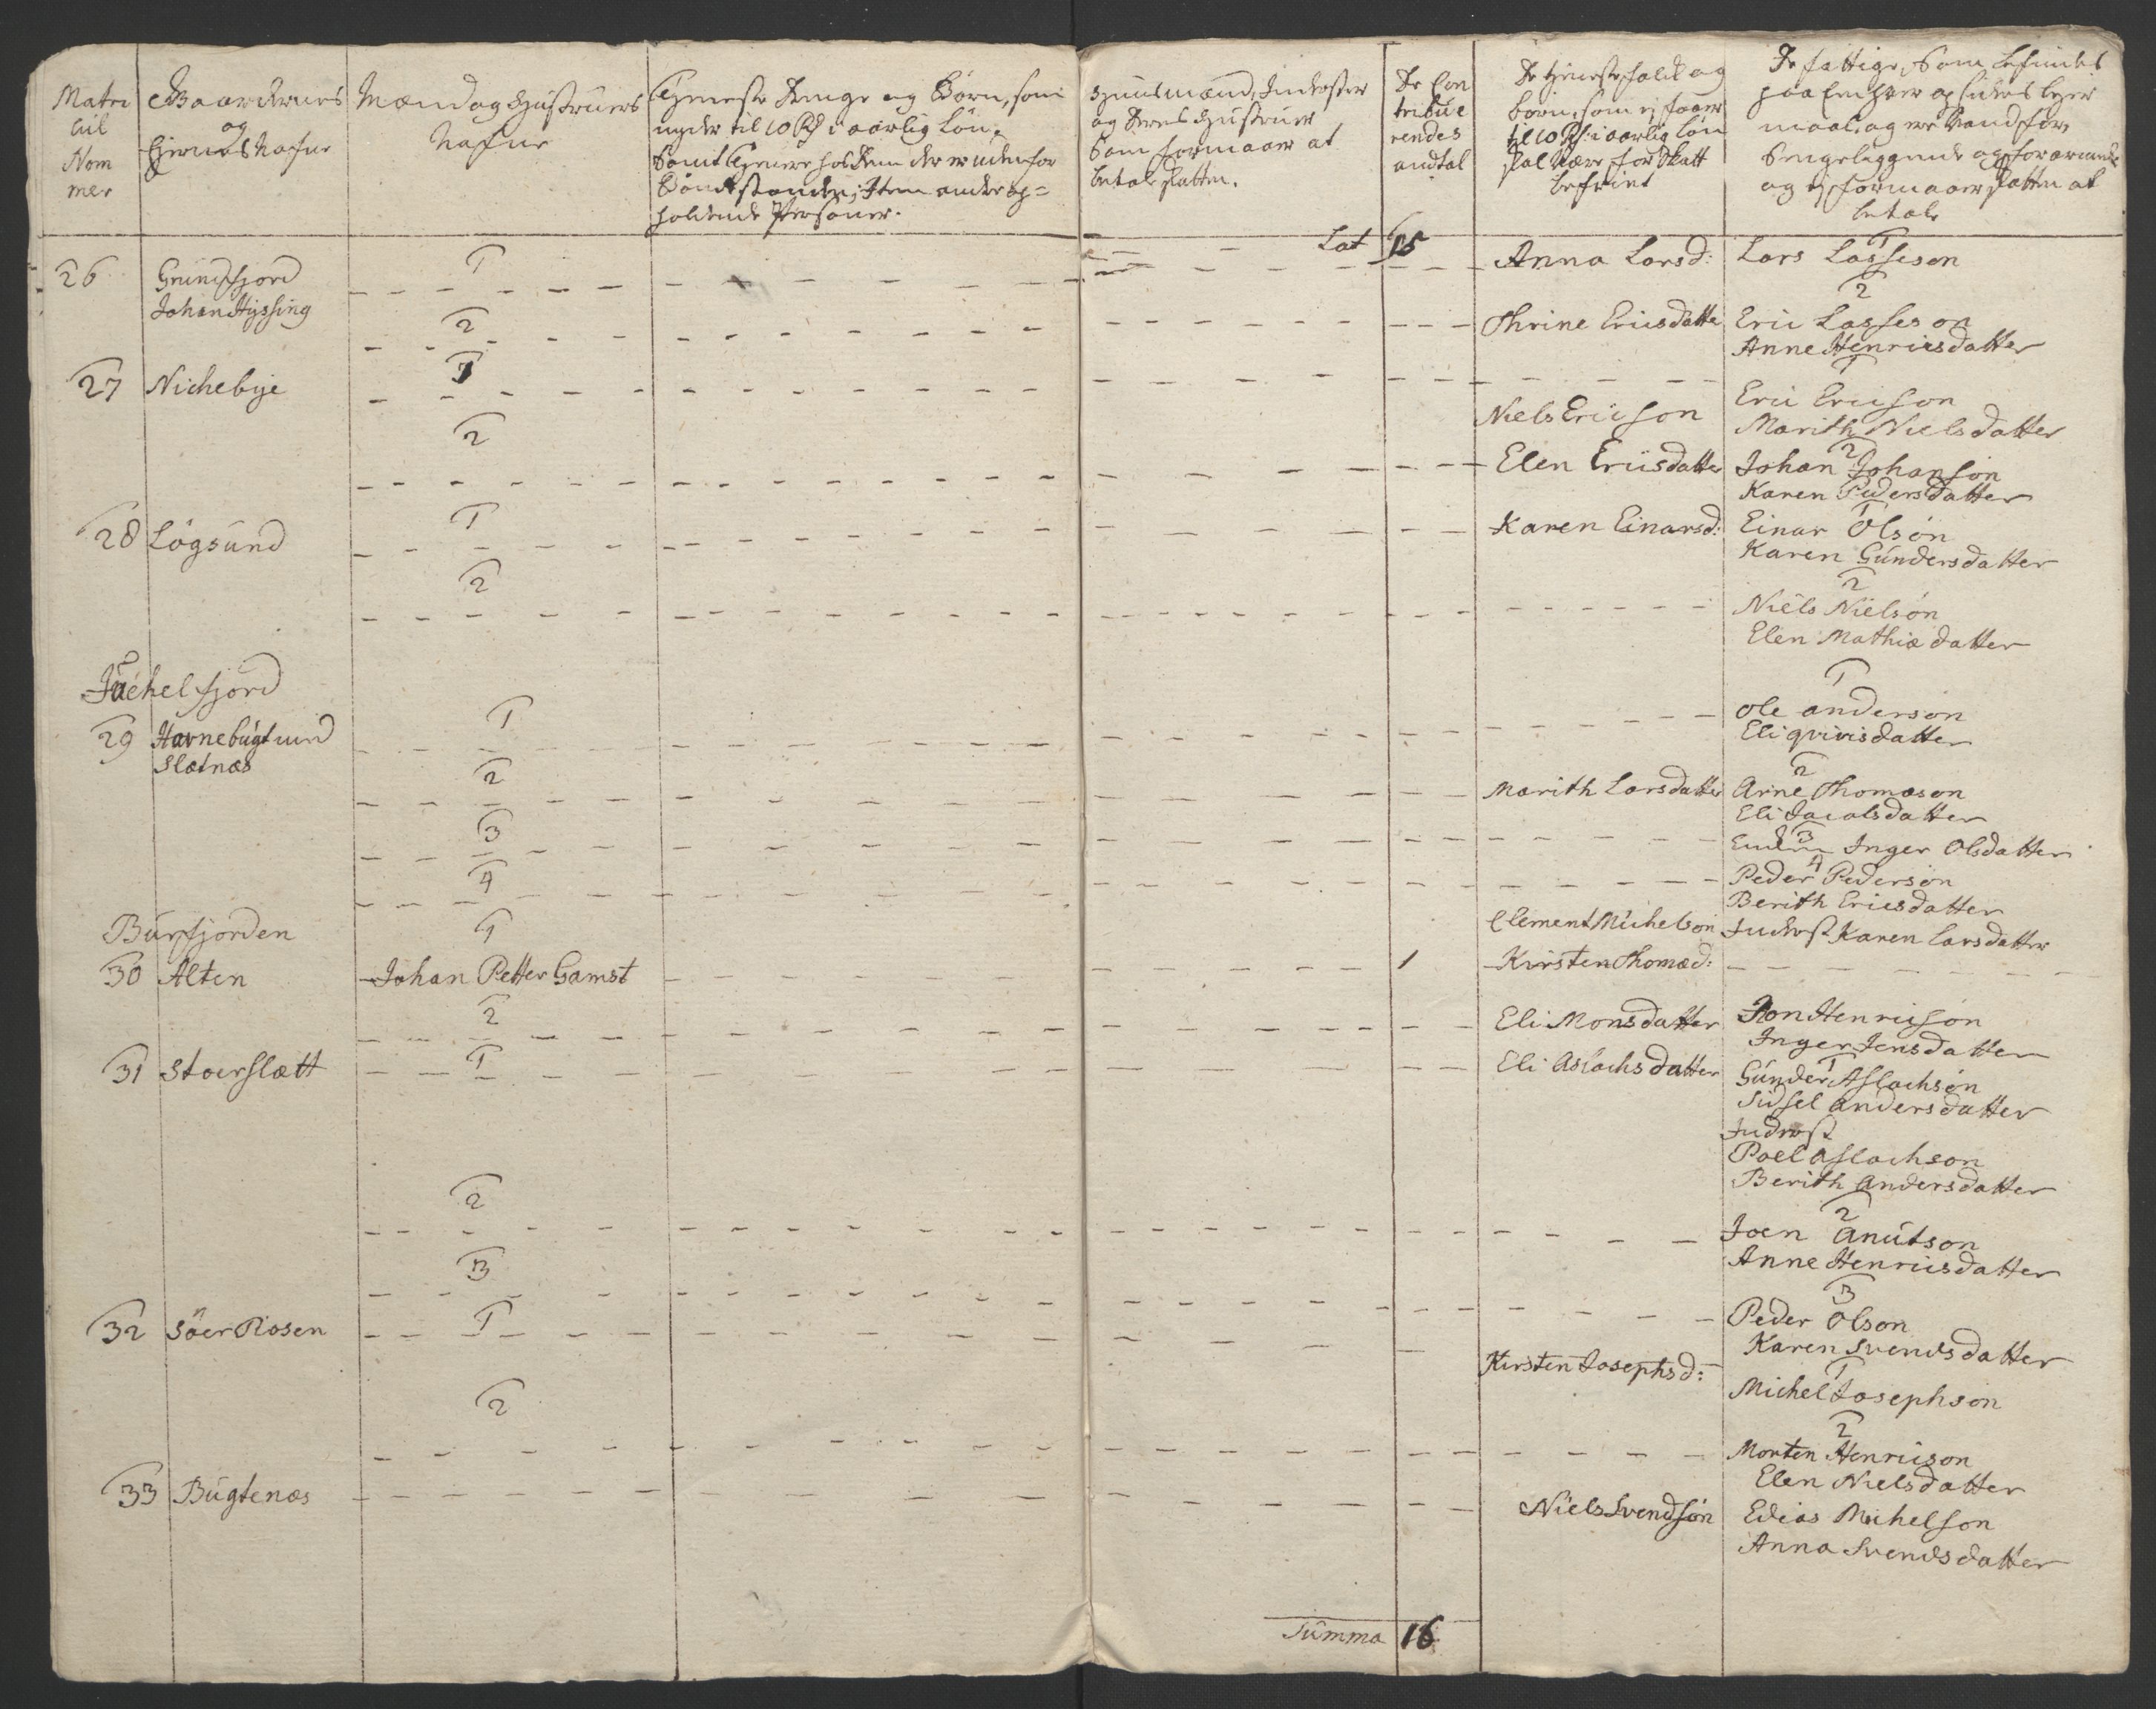 Matri
cul
Nom
mer
Gaardernes
og
Eiernes Nafne
Mænd og Hustruers
Nafne
Tieneste Drenge og Børn, som
nyder til 10 Rd i aarlig Løn,
Samt Tienere hos dem der er uden for
Bondestanden; Item andre op=
holdende Persöner.
Huusmænd, Inderster
og deres Hustruer
Som formaaer at
betale skatten.
De Con
tribue
rendes
andtal
De tieneste folck og
børn, som ej faaer
til 10 Rd: i aarlig Løn
skal være for Skatt
befriet
De fattige, Som befindes
paa Een hver og sidens leier
maal, og ere Vandføre,
Sengeliggende og forarmede
og ej formaaer skatten at
betale
Lat 15
26 Grundfjord 1 Anna Larsd: 1 Lars Lasseson
Johan Hysing 2 Thrine Ericsdatte 2 Eric Lasseson
Anne Henricsdatter
27 Nichebye 1 1 Eric Ericson
Niels Ericson Marith Nielsdatter
2 Elen Ericsdatter 2 Johan Johanson
Karen Pedersdatter
28 Lögsund 1 Karen Einarsd: 1 Einar Olsön
Karen Gundersdatter
2 2 Niels Nielsön
Elen Mathiædatter
Jöchelfjord
29 Havnebugt und 1 1 Ole anderson
Slætnæs Eli qvivisdatter
2 Marith Larsdatter 2 Arne Thomæson
Eli Jacobsdatter
3 3 Inger Olsdatter
4 4 Peder Pederson
Berith Ericsdatter
Burfjorden 1 Clement Michelsön Inderst Karen Larsdatter
30 Alten Johan Petter Gamst 1 Kirsten Thomæd:
2 Eli Monsdatter Jon Henricsön
Inger Jensdatter
31 Stoerslætt 1 Eli Aslachsdatter 1 Gunder Aslachsön
Sidsel andersdatter
Inderst
Poel Aslachson
Berith Andersdatter
2 2 Joen Anutson
Anne Henricsdatter
3 3 Peder Olson
Karen Svendsdatter
32 Söer Rosen 1 Kirsten Josephsd: 1 Michel Josephson
2 2 Morten Henricson
Elen Nielsdatter
33 Bugtenæs Niels Svendsön Edias Michelson
Anna Svendsdatter
Summa 16